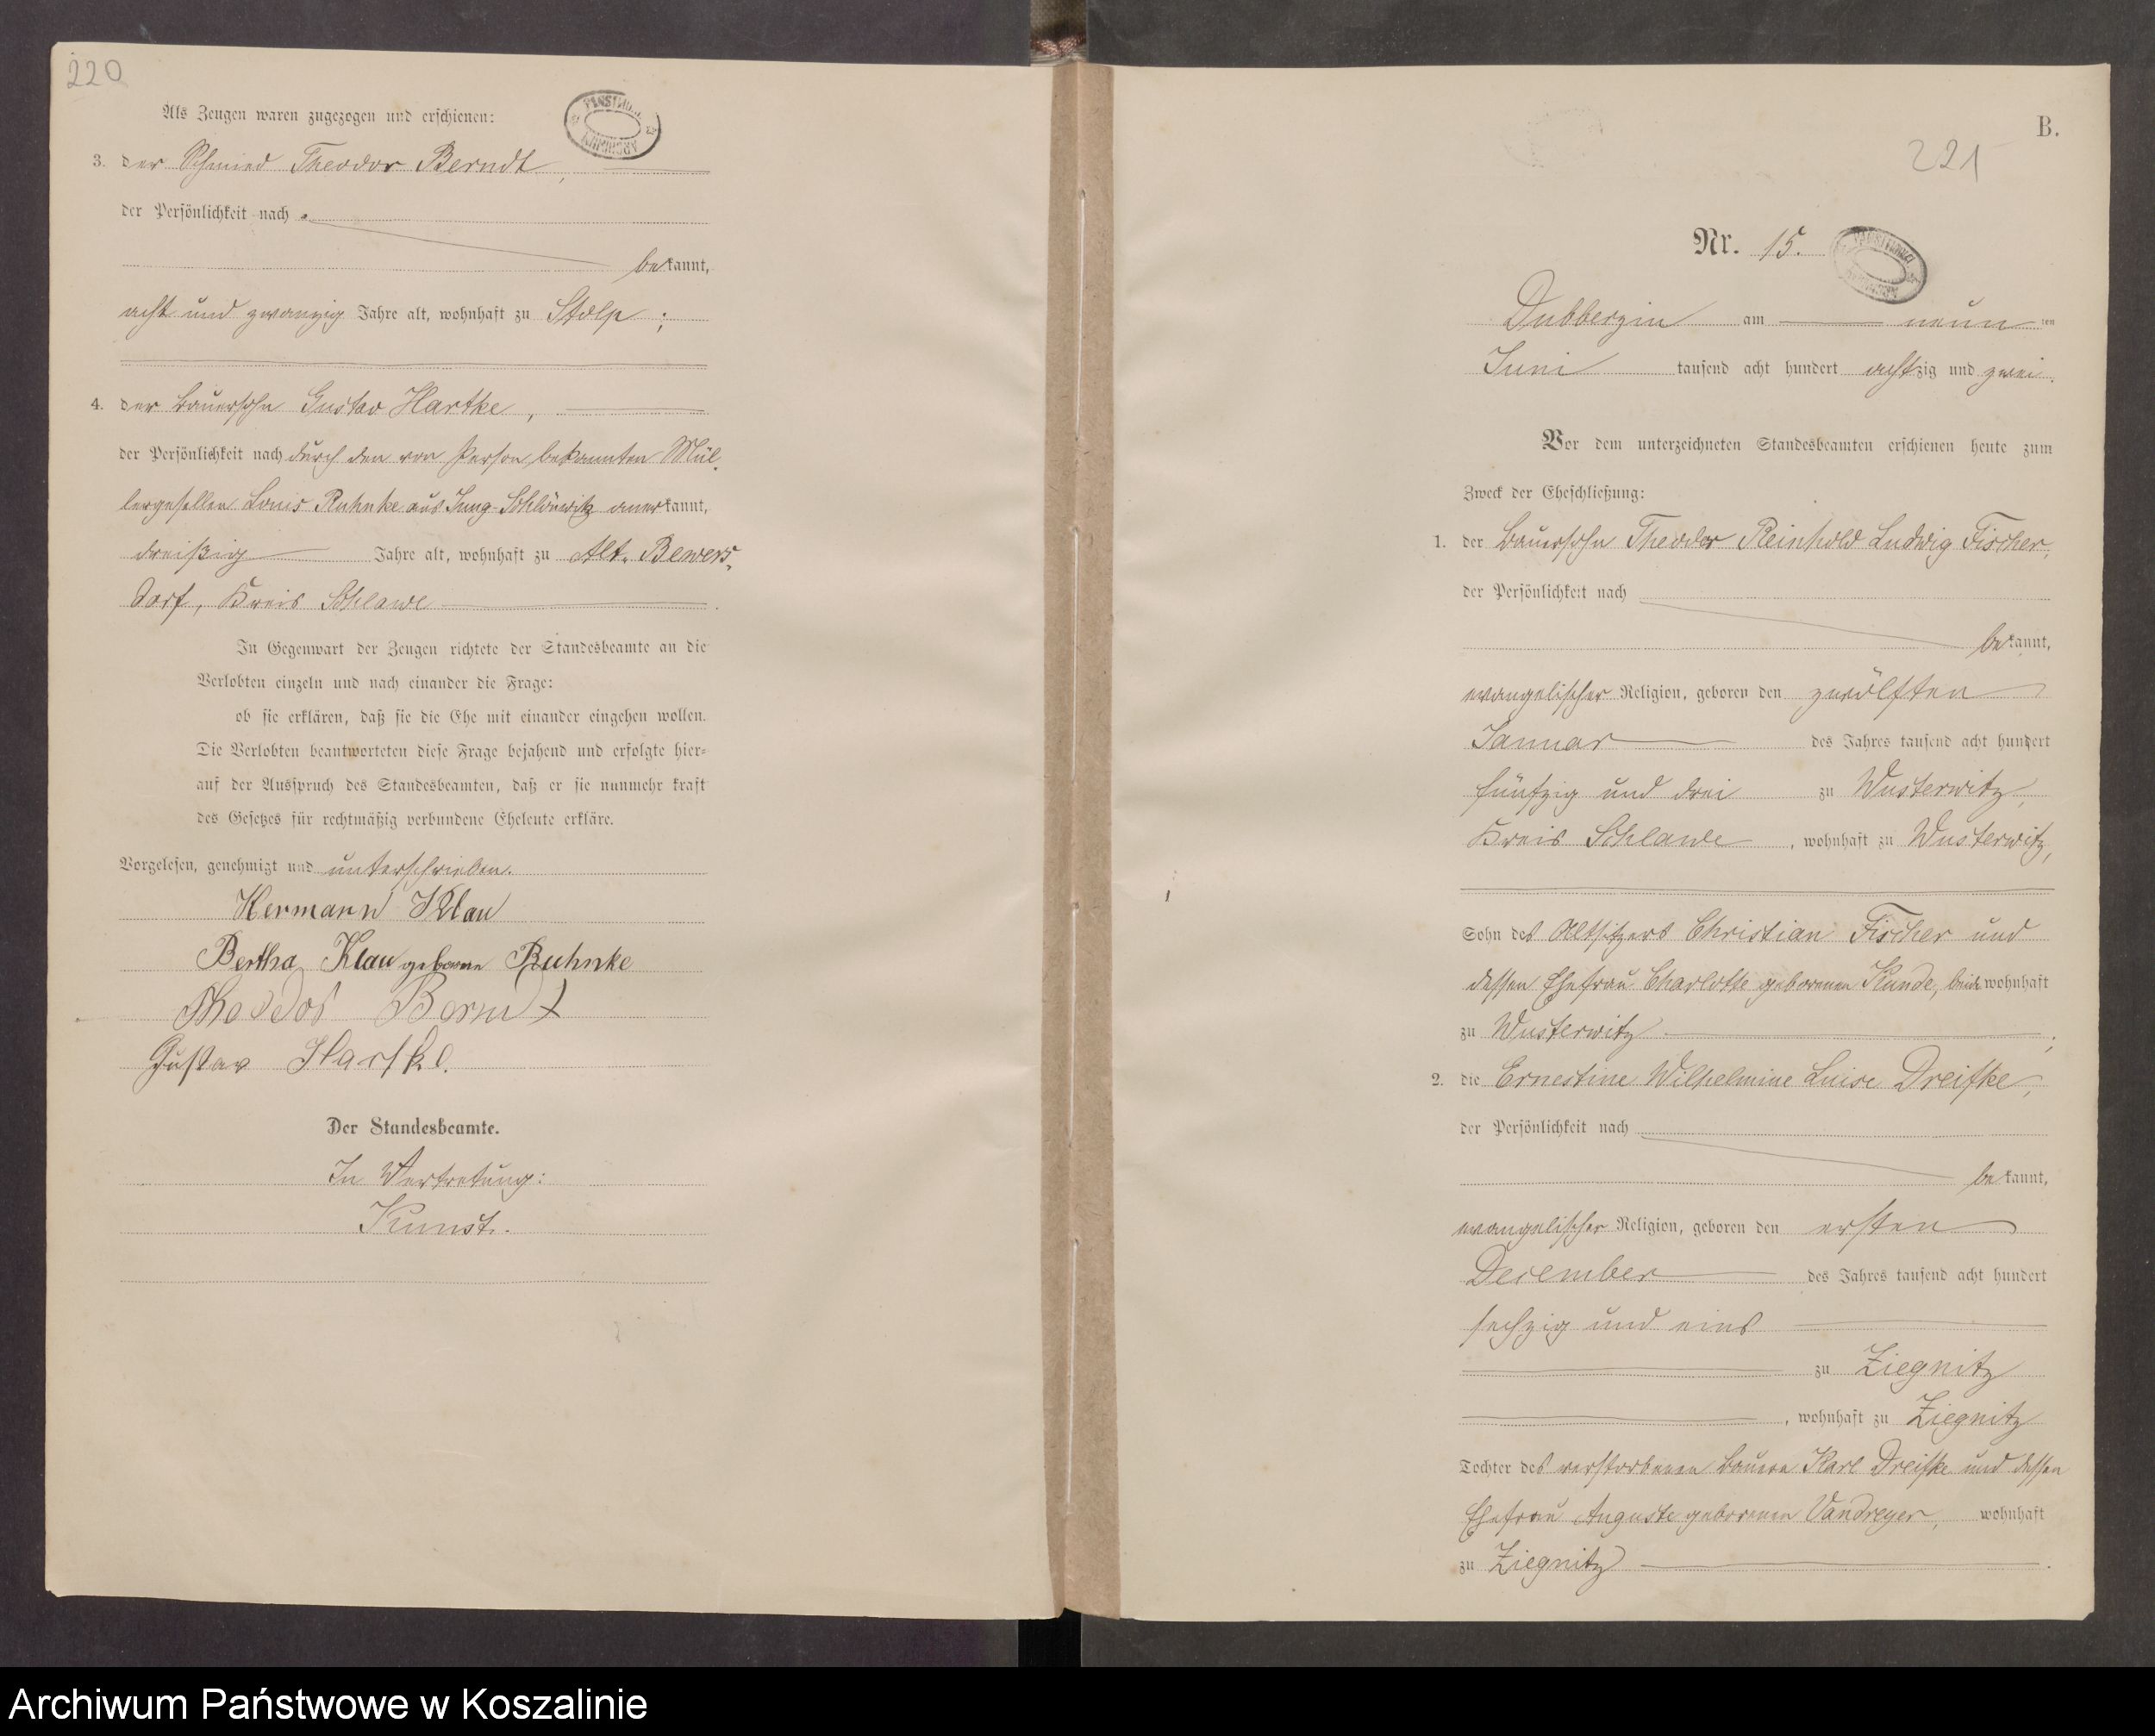 220
Als Zeugen waren zugezogen und erschienen:
3. der Schmied Theodor Berndt,
der Persönlichkeit nach
bekannt,
acht und zwanzig Jahre alt, wohnhaft zu Stolp;
4. der Bauersohn Gustav Hartke,
der Persönlichkeit nach durch den von Person bekannten Mül-
lergesellen Louis Ruhnke aus Jung-Schlawitz anerkannt,
dreißig Jahre alt, wohnhaft zu Alt-Bewers-
dorf, Kreis Schlawe
In Gegenwart der Zeugen richtete der Standesbeamte an die
Verlobten einzeln und nach einander die Frage:
ob sie erklären, daß sie die Ehe mit einander eingehen wollen.
Die Verlobten beantworteten diese Frage bejahend und erfolgte hier-
auf der Ausspruch des Standesbeamten, daß er sie nunmehr kraft
des Gesetzes für rechtmäßig verbundene Eheleute erkläre.
Vorgelesen, genehmigt und unterschrieben.
Hermann Klau
Bertha Klau geborene Ruhnke
Theodor Berndt
Gustav Hartke.
Der Standesbeamte.
In Vertretung:
Kunst.
B.
221
Nr. 15.
Dubberzin am neunten
Juni tausend acht hundert achtzig und zwei.
Vor dem unterzeichneten Standesbeamten erschienen heute zum
Zweck der Eheschließung:
1. der Bauersohn Theodor Reinhold Ludwig Fischer,
der Persönlichkeit nach
bekannt,
evangelischer Religion, geboren den zwölften
Januar des Jahres tausend acht hundert
fünfzig und drei zu Wusterwitz,
Kreis Schlawe, wohnhaft zu Wusterwitz,
Sohn des Altsitzers Christian Fischer und
dessen Ehefrau Charlotte geborenen Kunde, beide wohnhaft
zu Wusterwitz;
2. die Ernestine Wilhelmine Luise Dreifke,
der Persönlichkeit nach
bekannt,
evangelischer Religion, geboren den ersten
December des Jahres tausend acht hundert
sechzig und eins
zu Ziegnitz
, wohnhaft zu Ziegnitz
Tochter des verstorbenen Bauern Karl Dreifke und dessen
Ehefrau Auguste geborenen Vandreyer, wohnhaft
zu Ziegnitz.
Archiwum Państwowe w Koszalinie